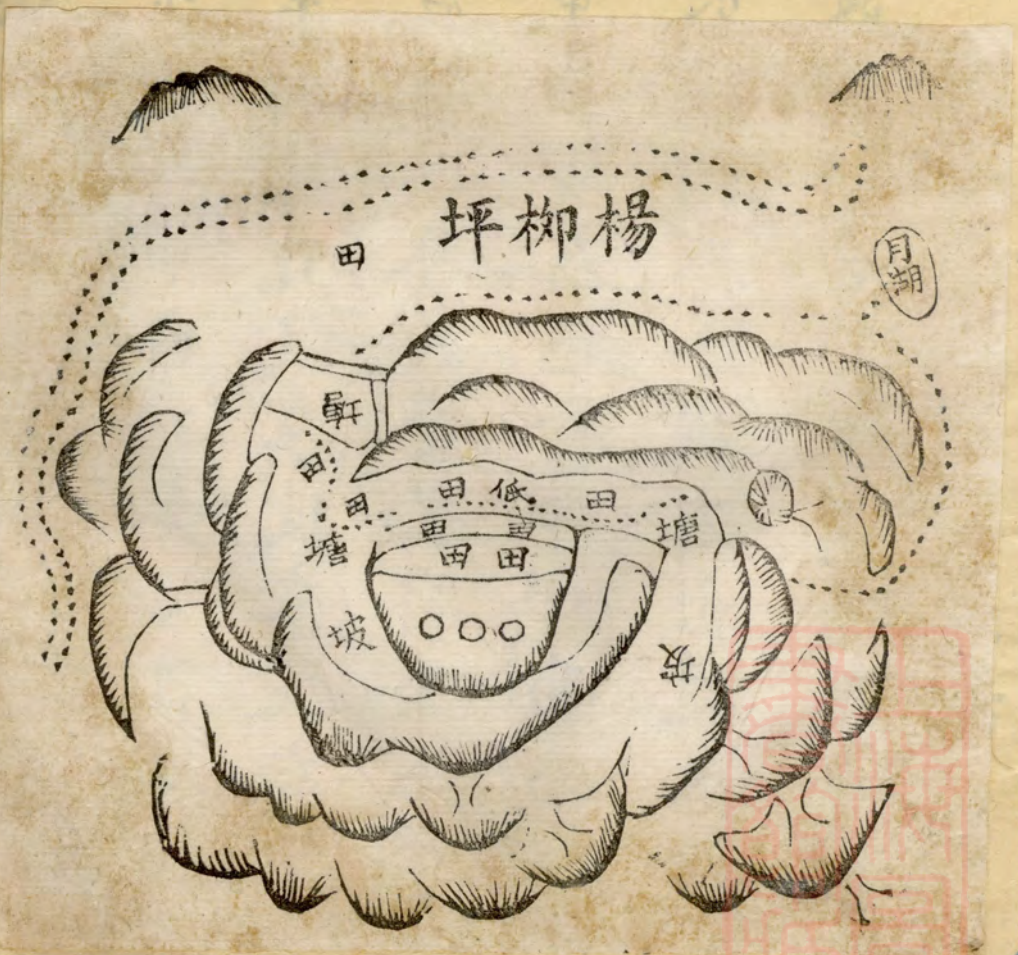 楊栁坪
田
月湖
田
田
田低
田
塘
田
塘
田田
坡
坡